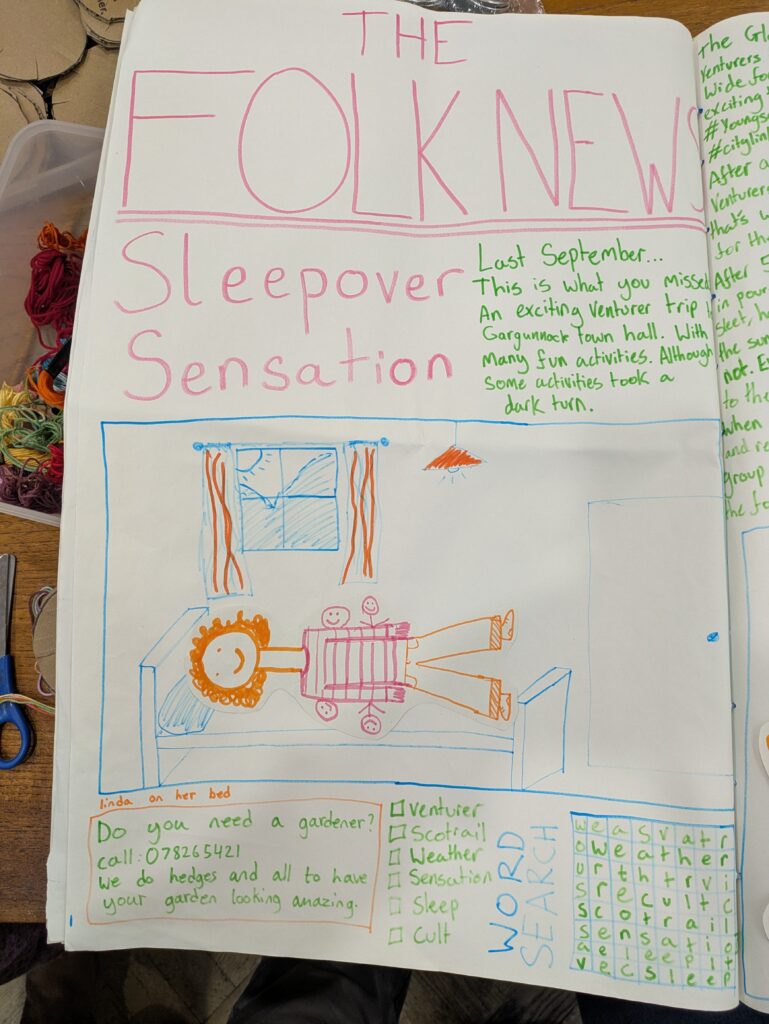 THE
FOLK NEWS
Sleepover
Sensation
Last September...
This is what you missed
An exciting Venturer trip
Gargunnock town hall. With
many fun activities. Although
some activities took a
dark turn.
linda on her bed
Do you need a gardener?
call: 078265421
We do hedges and all to have
your garden looking amazing.
Venturer
Scotrail
Weather
Sensation
Sleep
Cult
WORD
SEARCH
w e a s v a t r
o w e a t h e r
u r t h t r v i
s r e c u l t c
s c o t r a i l
s e n s a t i o
a e l e e p l t
v e c s l e e p
The
venturers
Wide for
exciting
#Youngsc
#citylin
After a
Venturer
that's w
for the
After 5
in pour
sleet, h
the sun
not. E
to the
when
and re
group
the fo